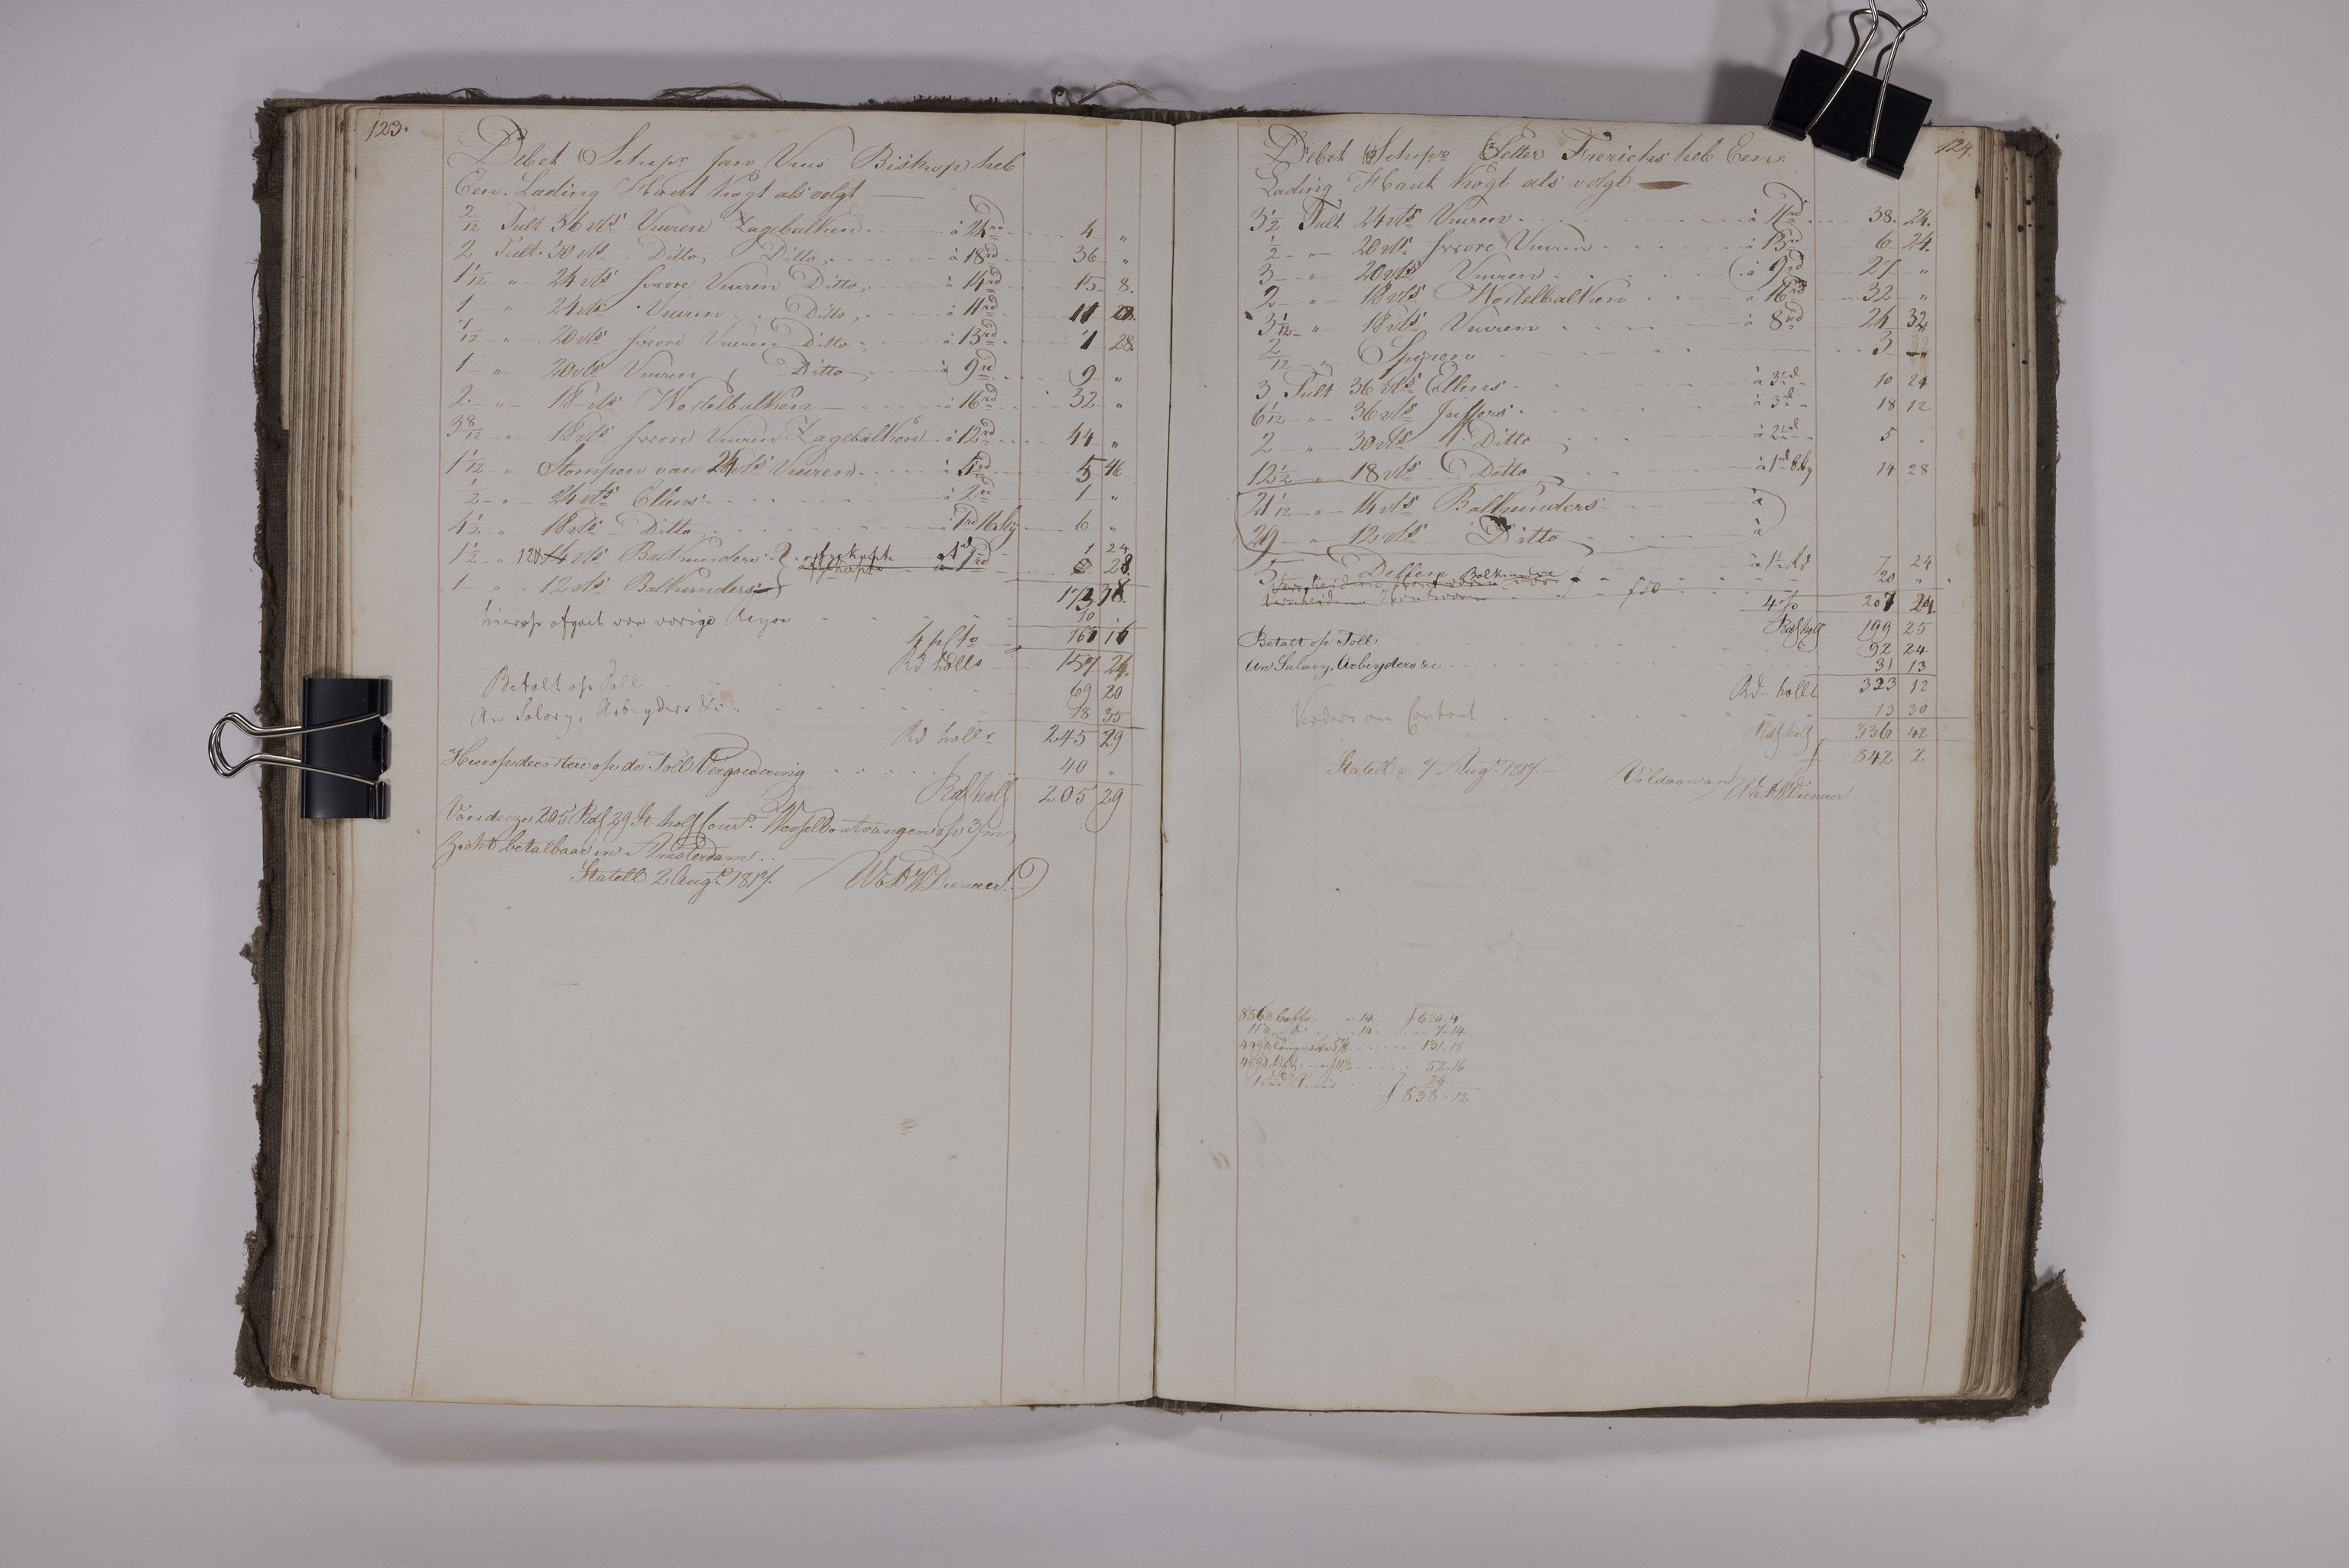 123.
Debet Schipr Jan Vius Biskup heb
Een Lading Haut kogt als volgt
2/12 Tult 36 vts Vuuren Zagebalken à 24rd 4 "
2 Tult 30 vts Ditto Ditto à 18rd 36 "
1 1/12 " 24 vts Vuuren Ditto à 14rd 15 8.
1 " 24 vts Vuuren Ditto à 11rd 11
1/12 " 20 vts Vuuren Ditto à 13rd 1 28.
1 " 20 vts Vuuren Ditto à 9rd 9 "
2 " 18 vts Wortelbalken à 16rd 32 "
3 8/12 " 18 vts Vuuren Zagebalken à 12rd 44 "
1 1/12 " Stompen van 24 vts Vuuren à 5rd 5 46
1/2 " 24 vts Ellens à 2rd 1 "
4 1/2 " 18 vts Ditto à 1rd 16 6 "
1 1/2 " 12 vts Balkunders afgekapt à 1rd 1 24
1 " 12 vts Balkunders
hierop afgaet van vorige Reyse 10
4 p Cto
Rd holls 157 24.
Betalt op Toll 69 20
An Salary, Arbeyders &c 18 35
Rd holls 245 29
Hierop decortere op de Toll Vergoedering 40 "
Rd holl 205 29
Voor deeze 205 Rd 29 St. holl Cour. Wessell ontvangen op 3/m
Zicht betalbaar in Amsterdam
Statell 2 Augt 1817. Dienaer
124.
Debet Schipr Petter Frerichs heb Een
Lading Haut kogt als volgt
3 1/2 Tult 24 vts Vuuren à 11rd 38. 24.
1/2 " 20 vts Vuuren à 13rd 6 24.
3 " 20 vts Vuuren à 9rd 27 "
2 " 18 vts Wortelbalken à 16rd 32 "
3 1/12 " 18 vts Vuuren à 8rd 24 32
2/12 " Spyren 3
3 Tult 36 vts Ellens à 3 1/2d 10 24
6 1/12 " 36 vts Juffers à 3d 18 12
2 " 30 vts Ditto à 2 1/2d 5 -
12 1/2 " 18 vts Ditto à 1rd 8 14 28
21 1/12 " 14 vts Balkunders à
29 " 12 vts Ditto à
5 Dellen à 1 1/2 Rd 7 24
Balkundere 20 "
4 % 207 24.
Rd holl 199 25
Betalt op Toll 92 24
An Salary, Arbeyders &c 31 13
Rd holl 323 12
Verders an Contant 13 30
Rd holl 336 42
f 842 2
Statell 7 Augt 1817 Dienaer
886 14 f 620. 4
11 14 7-14
131-18
52-16
26
f 838-12